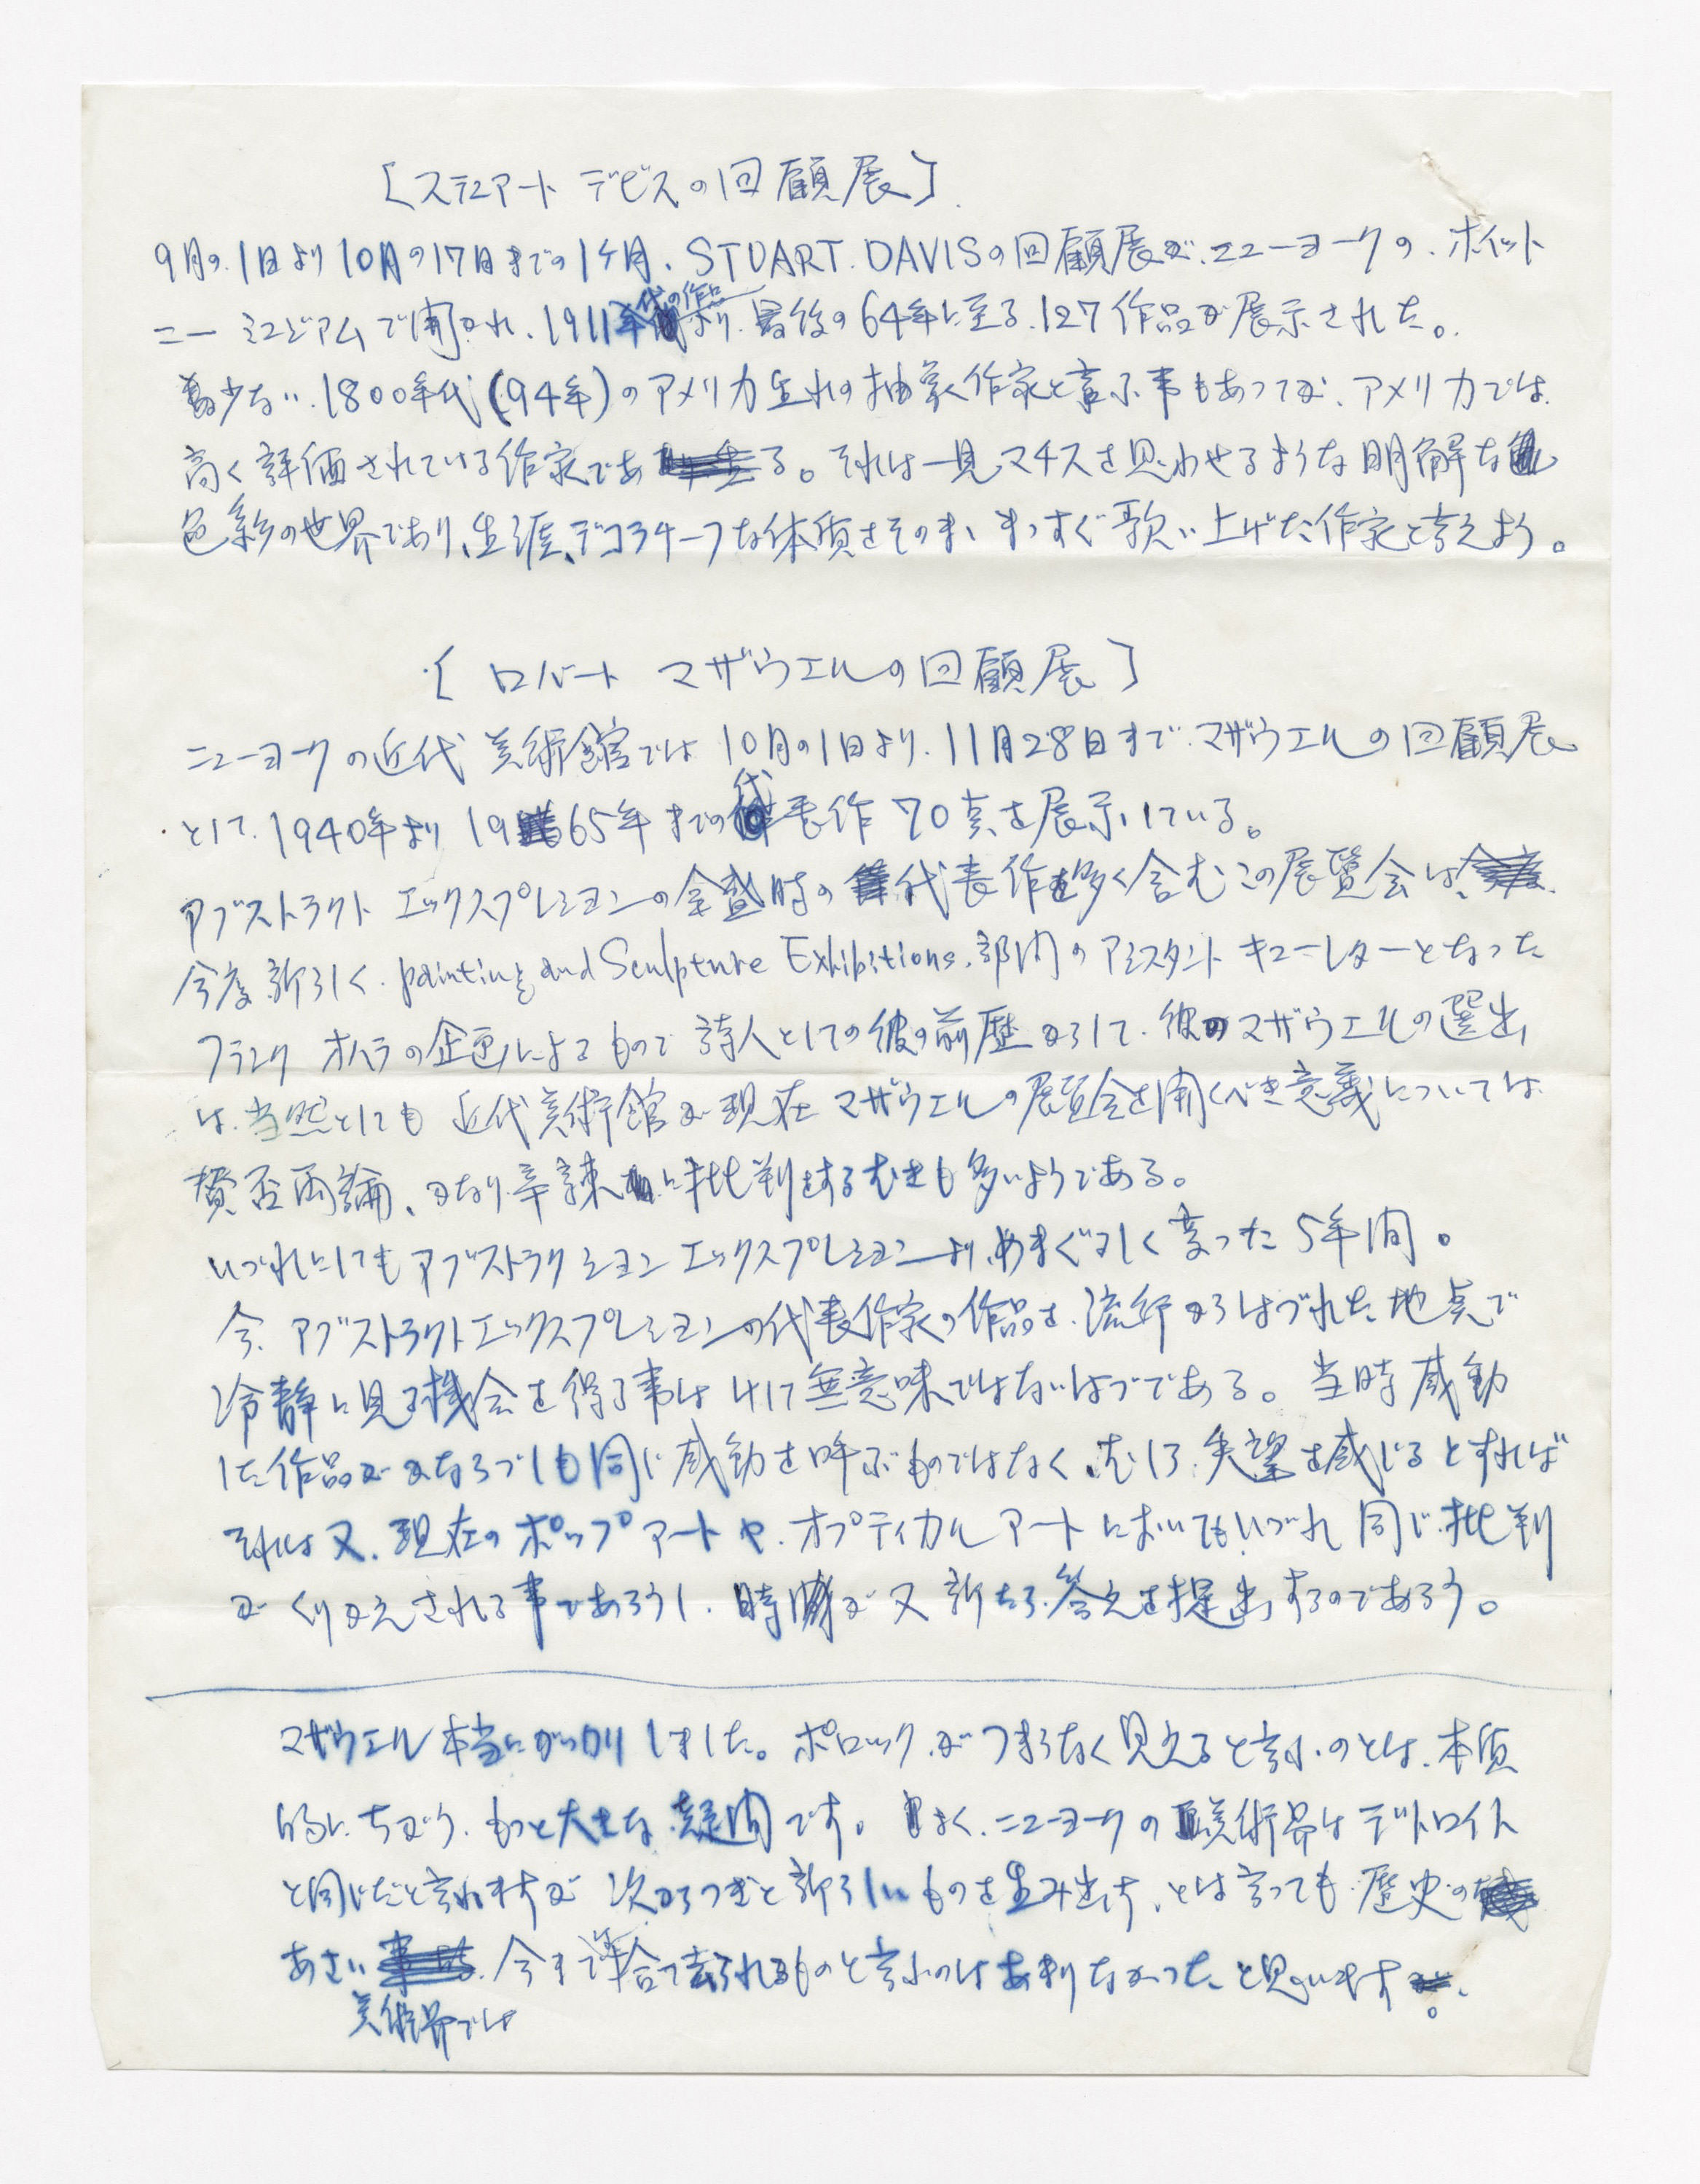 [ステュアート デビスの回顧展]
9月の1日より10月の17日までの1ヶ月、STUART. DAVISの回顧展が、ニューヨークの、ホイット
ニー ミュジアムで開かれ、1911年代の作品より、最後の64年に至る127作品が展示された。
数少ない、1800年代(94年)のアメリカ生れの抽象作家と言ふ事もあってか、アメリカでは
高く評価されている作家である。それは一見マチスを思わせるような明解な
色彩の世界であり、生涯、デコラチーフな体質をそのまゝまっすぐ歌い上げた作家と言えよう。
[ロバート マザウエルの回顧展]
ニューヨークの近代美術館では10月の1日より、11月28日まで、マザウエルの回顧展
として、1940年より1965年までの代表作70点を展示している。
アブストラクト エックスプレションの全盛時の代表作を多く含むこの展覧会は、
今度新らしく、painting and Sculpture Exhibitions. 部門のアシスタント キューレターとなった
フランク オハラの企画によるもので詩人としての彼の前歴からして、彼のマザウエルの選出
は、当然としても 近代美術館が現在マザウエルの展覧会を開くべき意義については
賛否両論、かなり辛辣に批判をするむきも多いようである。
いづれにしてもアブストラクション エックスプレションより、めまぐるしく変った5年間。
今、アブストラクトエックスプレションの代表作家の作品を、流行からはづれた地点で
冷静に見る機会を得る事は 決して無意味ではないはづである。当時感動
した作品がかならづしも同じ感動を呼ぶものではなく、むしろ失望を感じるとすれば
それは又、現在のポップアートや、オプティカル アートにおいてもいづれ同じ批判
がくりかえされる事であろうし、時が又新たな答えを提出するのであろう。
マザウエル本当にがっかりしました。ポロックがつまらなく見えると言ふのとは、本質
的にちがう、もっと大きな疑問です。よく、ニューヨークの美術界はデトロイト
と同じだと言いますが 次からつぎと新らしいものを生み出す、とは言っても歴史の
あさい美術界では 今まで 合って られるものと言ふのはあまりなかったと思います。